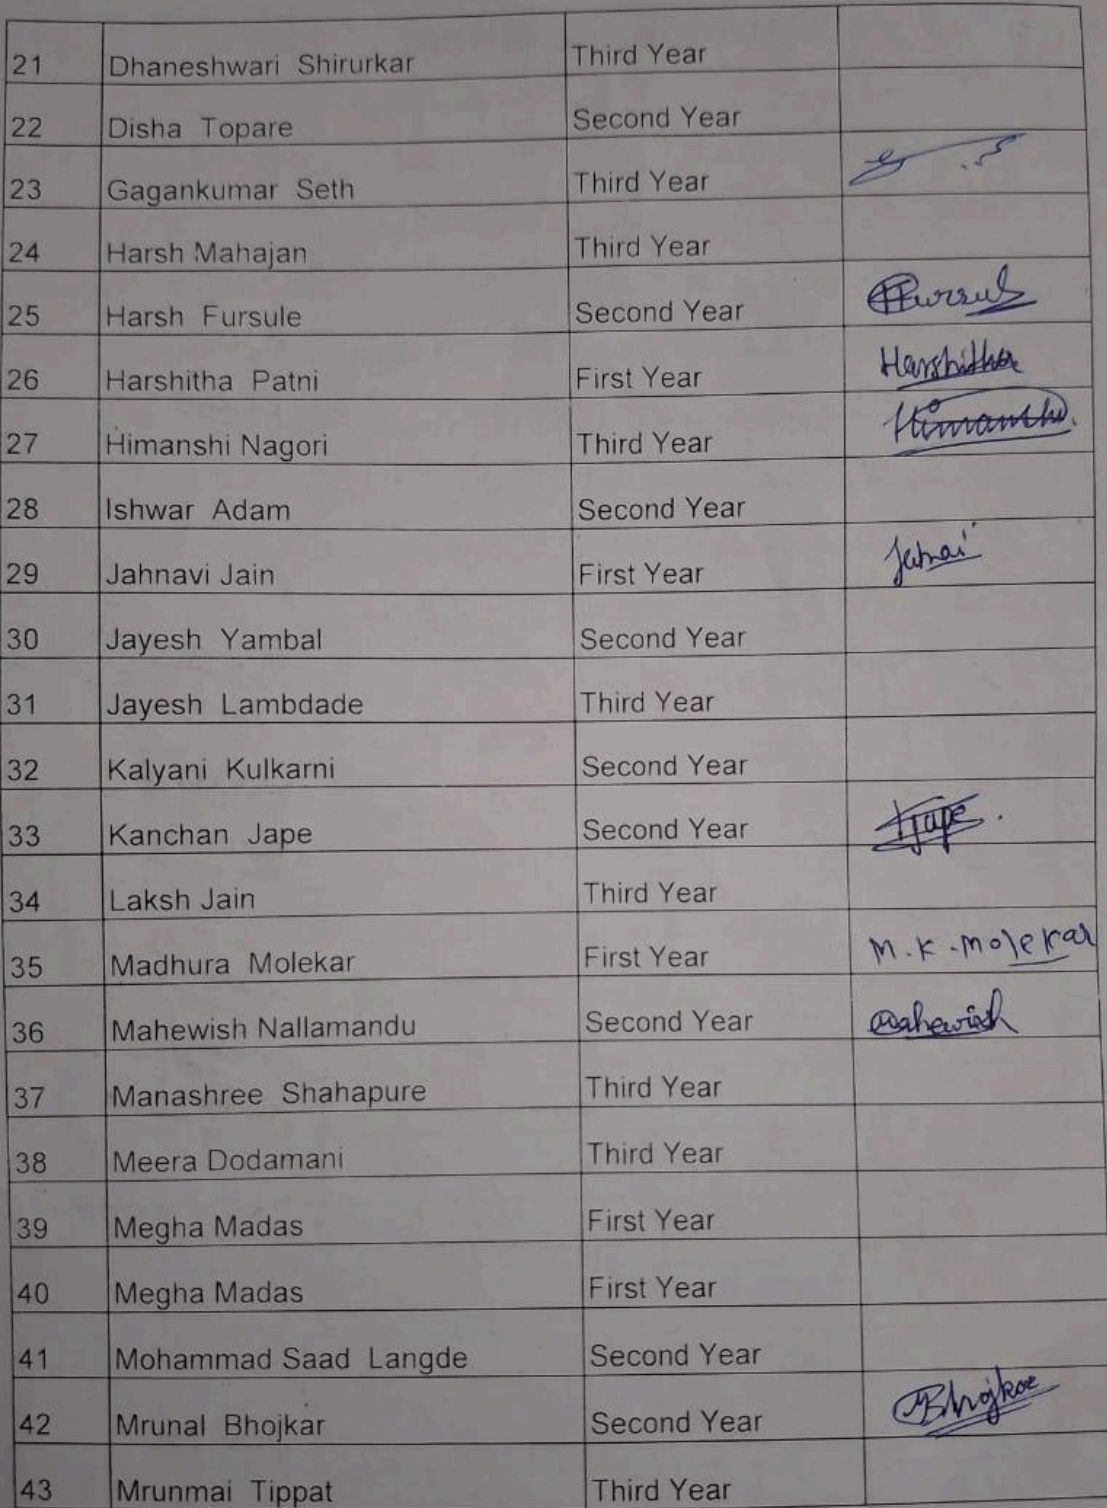 21 Dhaneshwari Shirurkar Third Year
22 Disha Topare Second Year
23 Gagankumar Seth Third Year
24 Harsh Mahajan Third Year
25 Harsh Fursule Second Year
26 Harshitha Patni First Year Harshitha
27 Himanshi Nagori Third Year Himanshi
28 Ishwar Adam Second Year
29 Jahnavi Jain First Year
30 Jayesh Yambal Second Year
31 Jayesh Lambdade Third Year
32 Kalyani Kulkarni Second Year
33 Kanchan Jape Second Year
34 Laksh Jain Third Year
35 Madhura Molekar First Year M.K.Molekar
36 Mahewish Nallamandu Second Year Mahewish
37 Manashree Shahapure Third Year
38 Meera Dodamani Third Year
39 Megha Madas First Year
40 Megha Madas First Year
41 Mohammad Saad Langde Second Year
42 Mrunal Bhojkar Second Year
43 Mrunmai Tippat Third Year